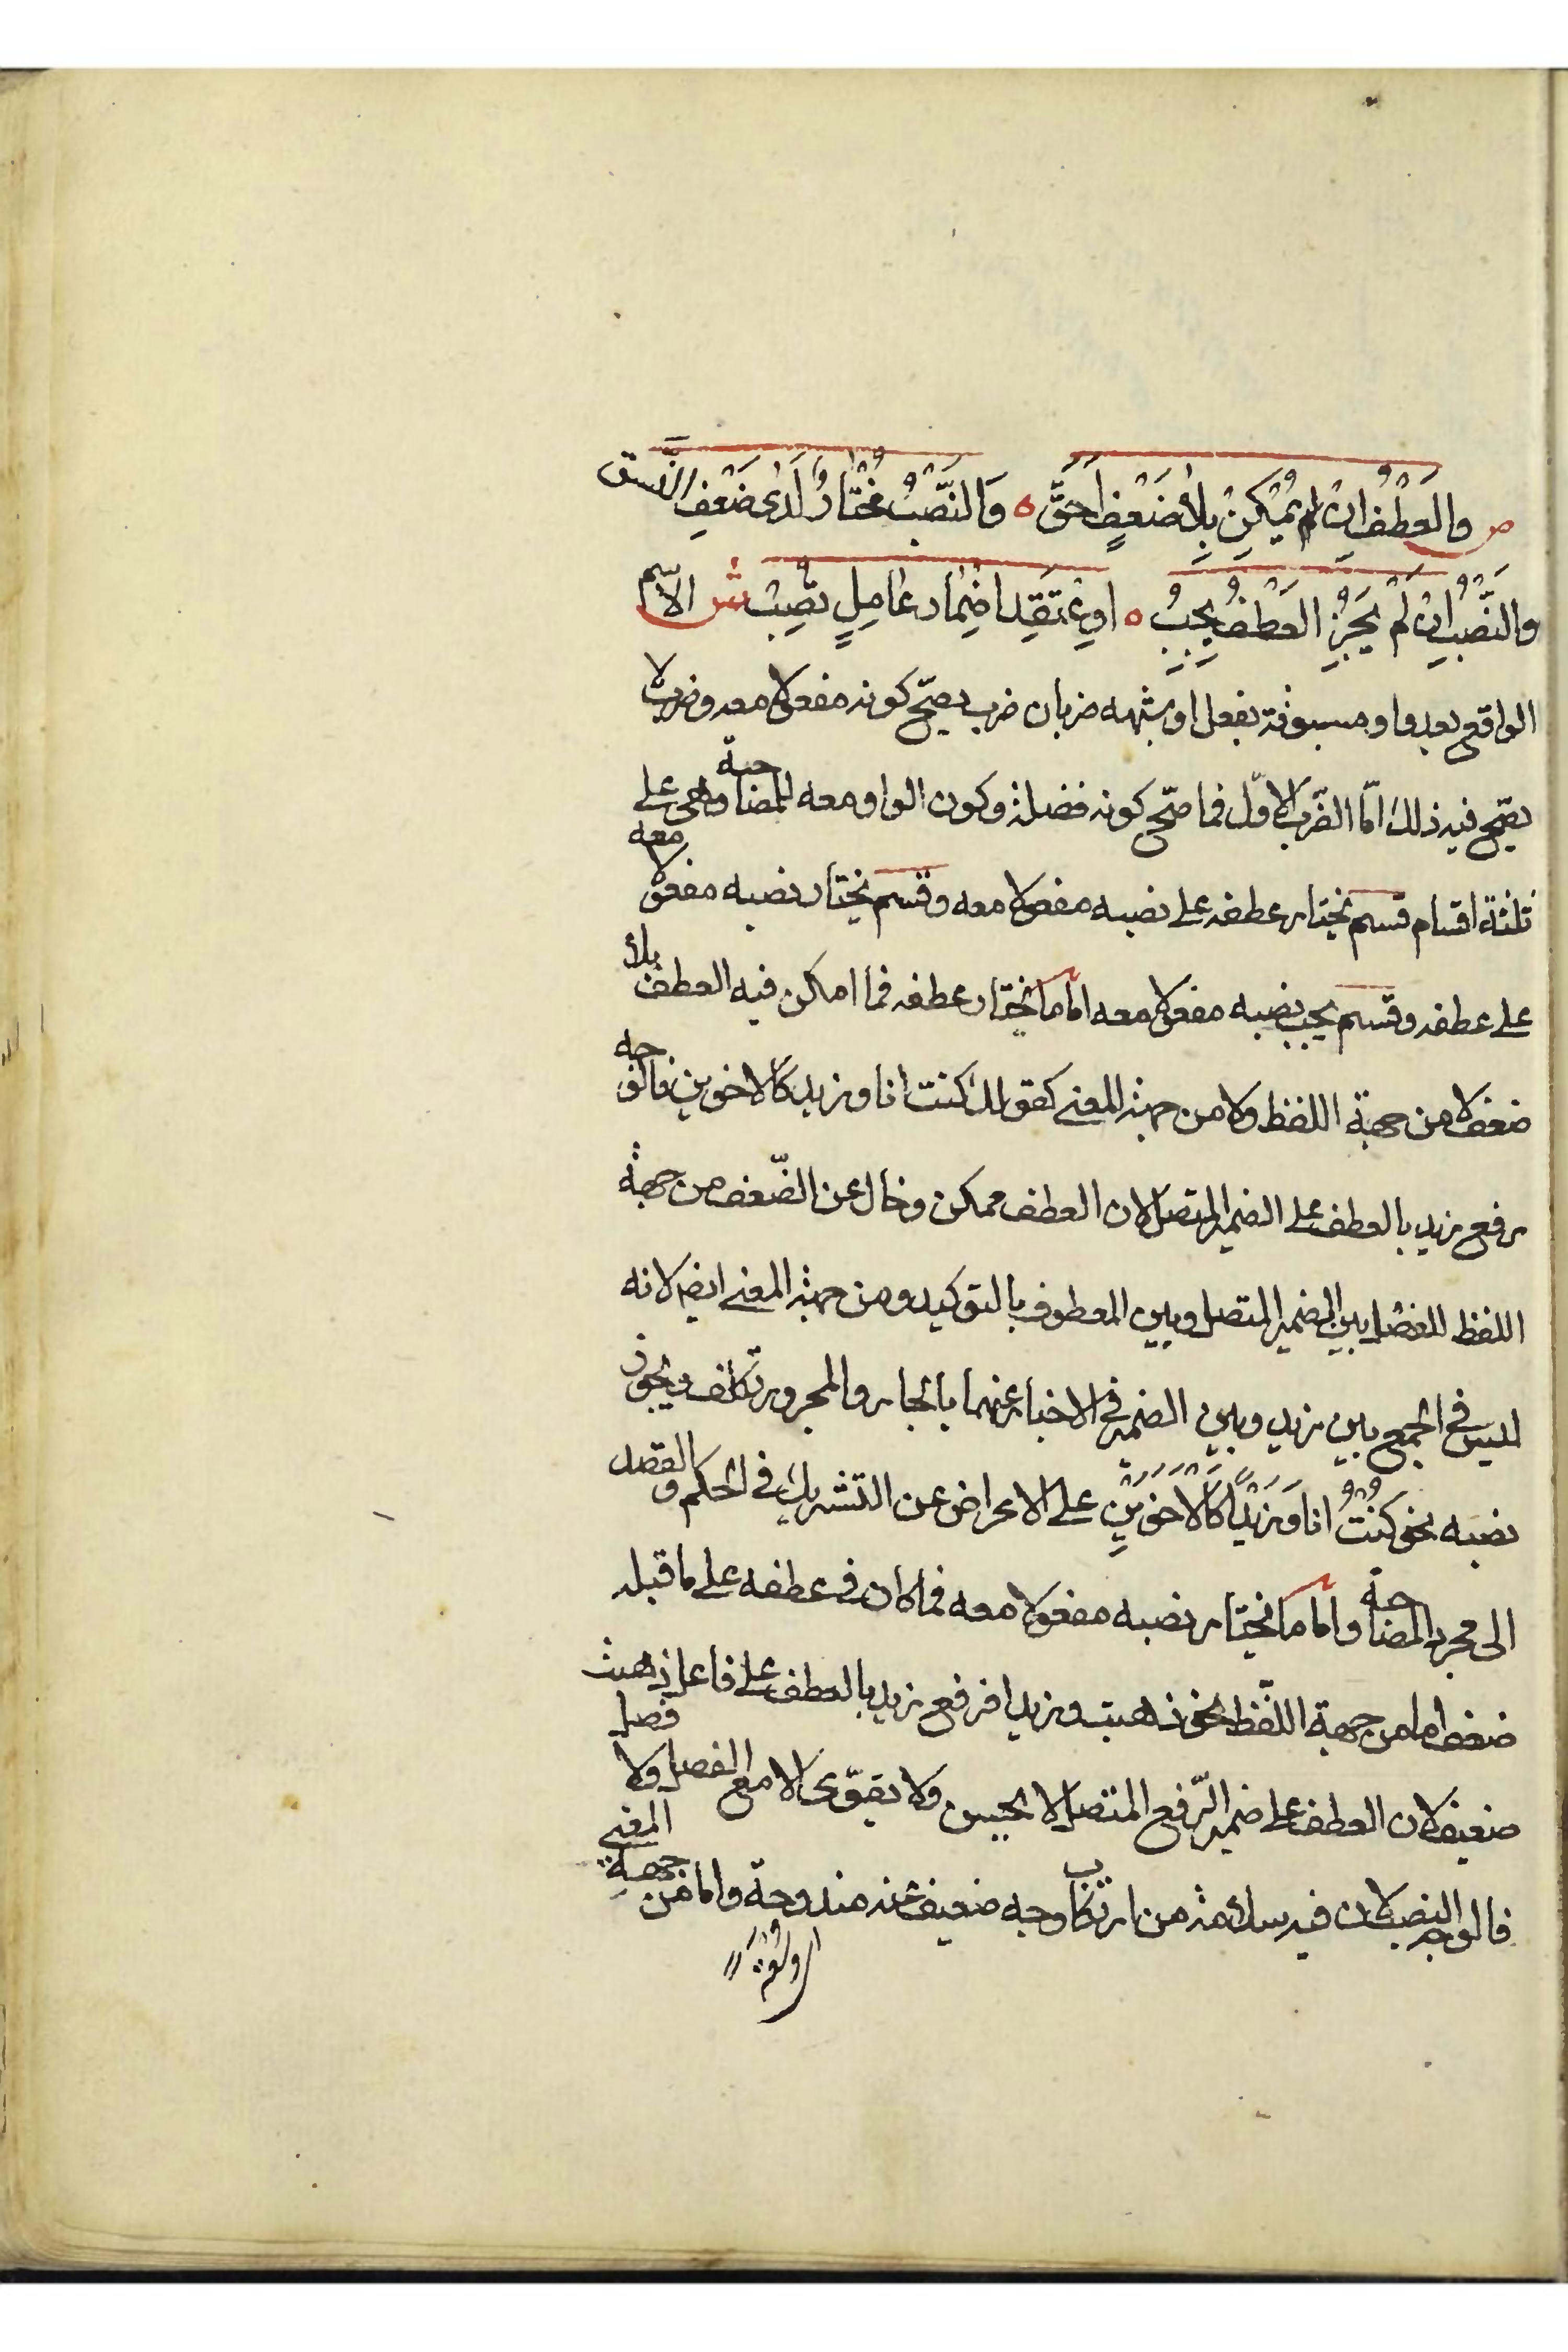 ص والعَطْفُ ان لم يُمْكِنْ بِلاَ ضَعْفٍ اَحَقَّ ه وَالنَّصْبُ مُخْتَارٌ لَدَى ضَعْفِ النَّسَق
والنَّصْبُ اِنْ لَمْ يَجُزِ العَطْفُ يَجِبُ ه اوِ عْتَقِد اِضْمَارَ عَامِلٍ تُصِبْ ش الاسْم
الواقع بعد واو مسبوقة بفعل او شبهه ضربان ضرب يصحّ كونه مفعولا معه وضرب لا
يصحّ فيه ذلك امّا الضّرب الاوّل فما صحّ كونه فضلة وكون الواو معه للمصاحبة وهى على
ثلثة اقسام قسم يختار عطفه على نصبه مفعولا معه وقسم يختار نصبه مفعولا معه
على عطفه وقسم يجب نصبه مفعولا معه اما ما يختار عطفه فما امكن فيه العطف بلا
ضعف لا من جهة اللفظ ولا من جهة المعنى كقولك كنت انا وزيد كالاخوين فالوجه
رفع زيد بالعطف على الضمير المتصل لان العطف ممكن وخال عن الضّعف من جهة
اللفظ للفصل بين الضمير المتصل وبين المعطوف بالتوكيد ومن جهة المعنى ايضا لانه
ليس فى الجمع بين زيد وبين الضمير فى الاخبار عنهما بالجار والمجرور تكلف ويجوز
نصبه نحو كُنْتُ انا وَزَيْدًا كَالاَخَوَيْنِ على الاعراض عن التشريك فى الحكم والقصد
الى مجرد المصاحبة واما ما يختار نصبه مفعولا معه فما كان فى عطفه على ما قبله
ضعف اما من جهة اللّفظ نحو ذهبت وزيدا فرفع زيد بالعطف على فاعل ذهبت
ضعيف لان العطف على ضمير الرّفع المتصل لا يحسن ولا يقوّى الا مع الفصل ولا فصل
فالوجه النصب لان فيه سلامة من ارتكاب وجه ضعيف عنه مندوحة واما من جهة المعنى